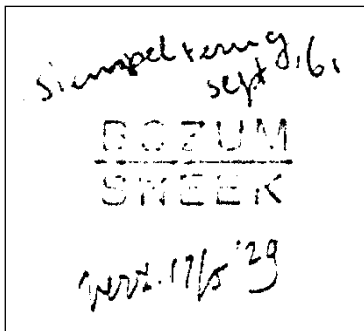 Stempel terug
sept
BOZUM
SNEEK
verz. 17/5 '29